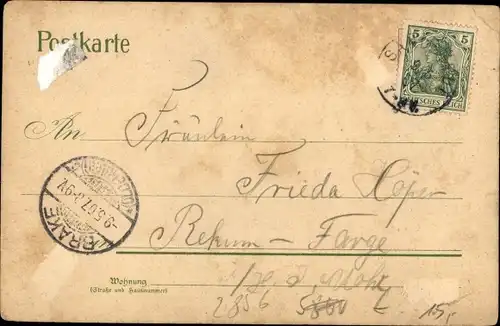 Postkarte
5 5
DEUTSCHES REICH
An Fräulein
Frieda Höper
Rekum-Farge
BRAKE
-9.5.07.8-9V.
Wohnung
(Straße und Hausnummer)
2856
15,